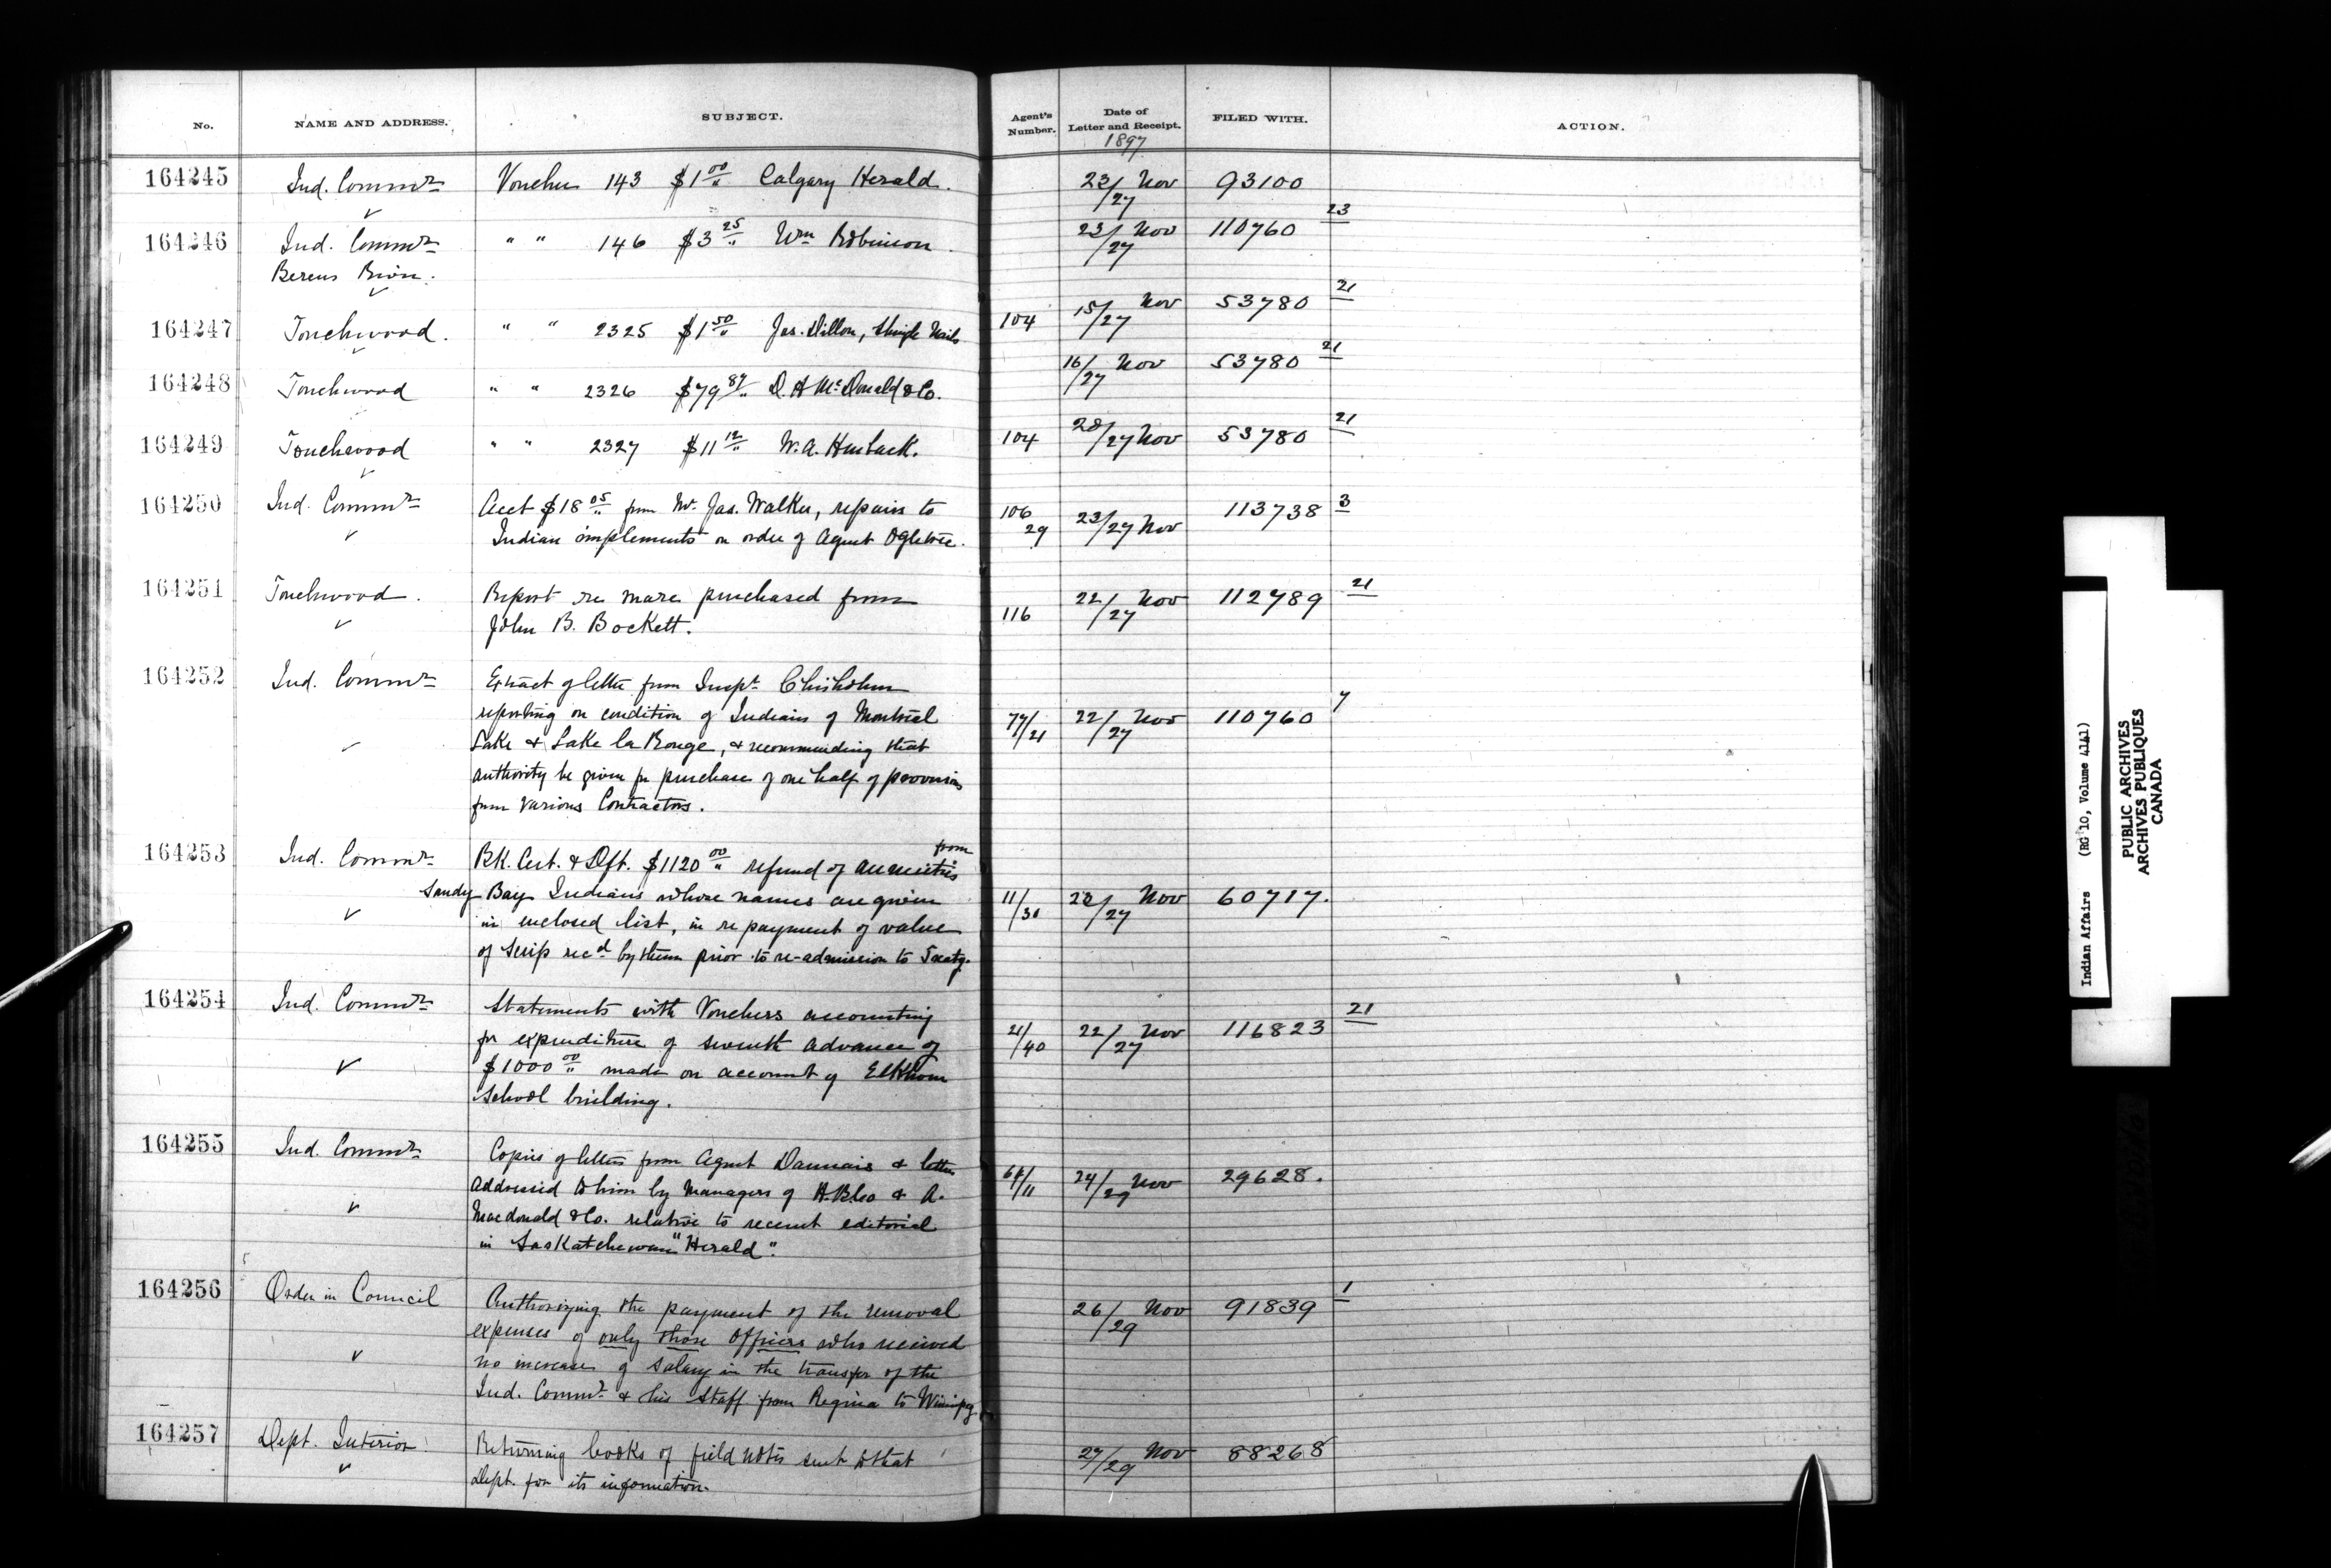 No. NAME AND ADDRESS. SUBJECT. Agent's Number. Date of Letter and Receipt. FILED WITH. ACTION.
1897
164245 Ind. Commr Voucher 143 $1 00/" Calgary Herald. 23/27 Nov 93100
164246 Ind. Commr " " 146 $3 25/" Wm Robinson. 23/27 Nov 110760 23
Berens River.
164247 Touchwood. " " 2325 $1 50/" Jas. Dillon, Shingle Nails 104 15/27 Nov 53780 21
164248 Touchwood " " 2326 $79 87/" D. H McDonald & Co. 16/27 Nov 53780 21
164249 Touchwood " " 2327 $11 12/" W. A. 104 20/27 Nov 53780 21
164250 Ind. Commr Acct $18 05/" from Mr. Jas. Walker, repairs to 106/29 23/27 Nov 113738 3
Indian implements on order of Agent Ogletree.
164251 Touchwood. Report re mare purchased from 116 22/27 Nov 112789 21
John B. Bockett.
164252 Ind. Commr Extract of letter from Inspt. Chisholm
reporting on condition of Indians of Montreal 77/21 22/27 Nov 110760 7
Lake & Lake la Ronge, & recommending that
authority be given for purchase of one half of provisions
from various Contractors.
164253 Ind. Commr Bk. Cert. & Dft. $1120 00/" refund of annuities from
Sandy Bay Indians whose names are given 11/30 22/27 Nov 60717.
in enclosed list, in re payment of value
of Scrip recd by them prior to re-admission to Treaty.
164254 Ind. Commr Statements with Vouchers accounting
for expenditure of seventh advance of 21/40 22/27 Nov 116823 21
$1000 00/" made on account of Elkhorn
School building.
164255 Ind. Commr Copies of letters from Agent Daunais & letters
addressed to him by Managers of H. B. Co & A. 64/11 24/29 Nov 29628.
Macdonald & Co. relative to recent editorial
in Saskatchewan "Herald".
164256 Order in Council Authorizing the payment of the removal 26/29 Nov 91839 1
expenses of only those Officers who received
no increase of salary in the transfer of the
Ind. Commr & his Staff from Regina to Winnipeg
164257 Dept. Interior Returning books of field notes sent to that 27/29 Nov 88268
Dept. for its information.
Indian Affairs (RG 10, Volume 4141)
PUBLIC ARCHIVES
ARCHIVES PUBLIQUES
CANADA